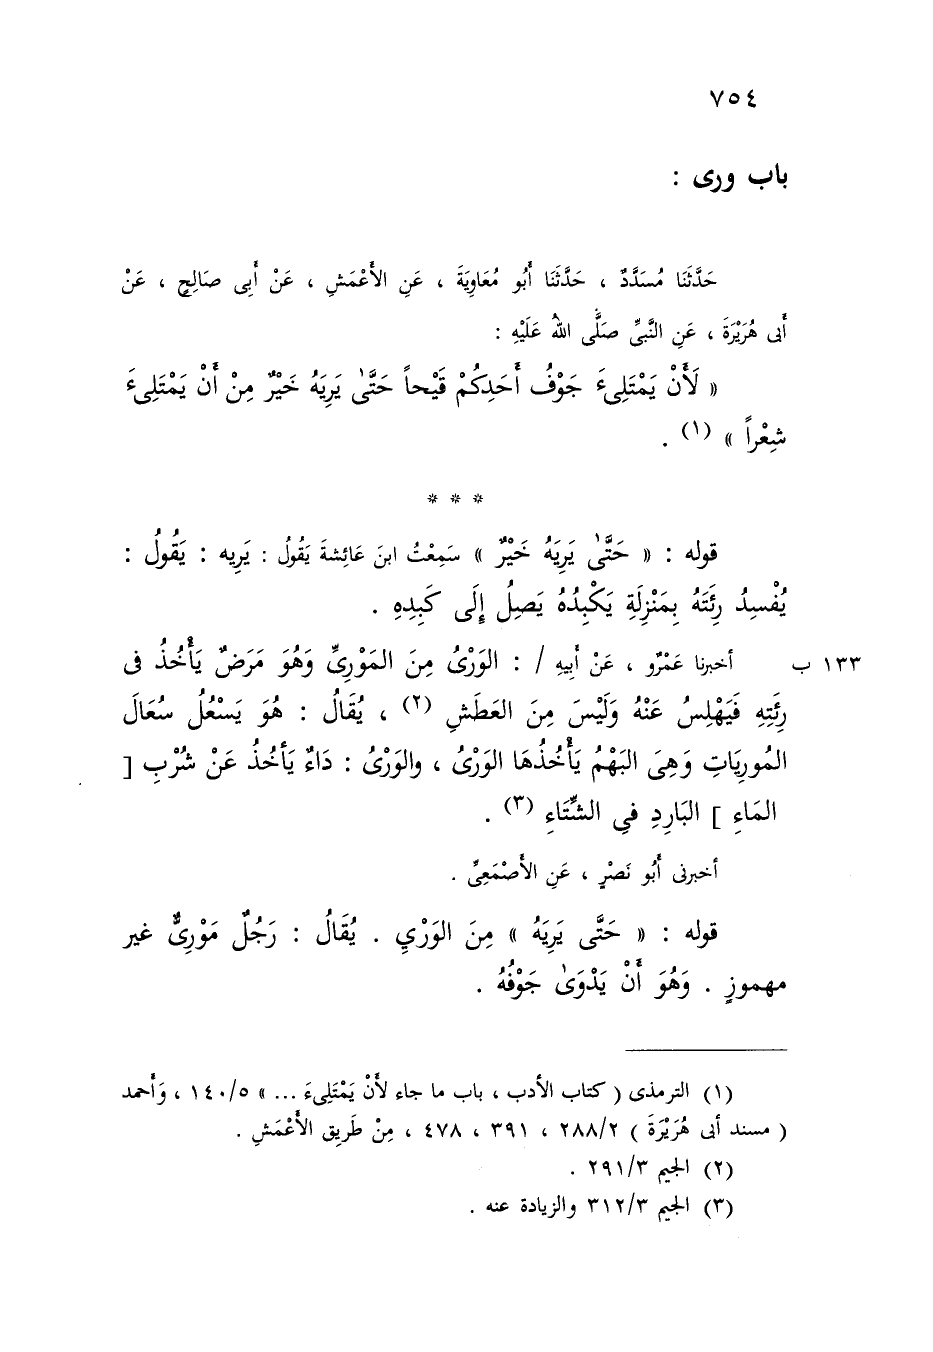 ٧٥٤
باب ورى :
حَدَّثَنَا مُسَدَّدٌ ، حَدَّثَنَا أَبُو مُعَاوِيَةَ ، عَنِ الأَعْمَشِ ، عَنْ أَبِى صَالِحٍ ، عَنْ
أَبى هُرَيْرَةَ ، عَنِ النَّبىِّ صَلَّى اللهُ عَلَيْهِ :
« لَأَنْ يَمْتَلِىءَ جَوْفُ أَحَدِكُمْ قَيْحاً حَتَّىٰ يَرِيَهُ خَيْرٌ مِنْ أَنْ يَمْتَلِىءَ
شِعْراً » (١) .
* * *
قوله : « حَتَّىٰ يَرِيَهُ خَيْرٌ » سَمِعْتُ ابنَ عَائِشةَ يَقُولُ : يَرِيه : يَقُولُ :
يُفْسِدُ رِئَتَهُ بِمَنْزِلَةِ يَكْبِدُهُ يَصِلُ إِلَى كَبِدِهِ .
١٣٣ ب أخبرنا عَمْرٌو ، عَنْ أَبِيهِ / : الوَرْىُ مِنَ المَوْرِىِّ وَهُوَ مَرَضٌ يَأْخُذُ فى
رِئَتِهِ فَيَهْلِسُ عَنْهُ وَلَيْسَ مِنَ العَطَشِ (٢) ، يُقَالُ : هُوَ يَسْعُلُ سُعَالَ
المُورِيَاتِ وَهِىَ البَهْمُ يَأْخُذُهَا الوَرْىُ ، والوَرْىُ : دَاءٌ يَأخُذُ عَنْ شُرْبِ [
المَاءِ ] البَارِدِ فىِ الشِّتَاءِ (٣) .
أخبرنى أَبُو نَصْرٍ ، عَنِ الأَصْمَعِىِّ .
قوله : « حَتَّى يَرِيَهُ » مِنَ الوَرْيِ . يُقَالُ : رَجُلٌ مَوْرِىٌّ غير
مهموزٍ . وَهُوَ أَنْ يَدْوَىٰ جَوْفُهُ .
(١) الترمذى ( كتاب الأدب ، باب ما جاء لأَنْ يَمْتَلِىءَ ... » ١٤٠/٥ ، وَأَحمد
( مسند أبى هُرَيْرَةَ ) ٢٨٨/٢ ، ٣٩١ ، ٤٧٨ ، مِنْ طَرِيق الأَعْمَشِ .
(٢) الجيم ٢٩١/٣ .
(٣) الجيم ٣١٢/٣ والزيادة عنه .